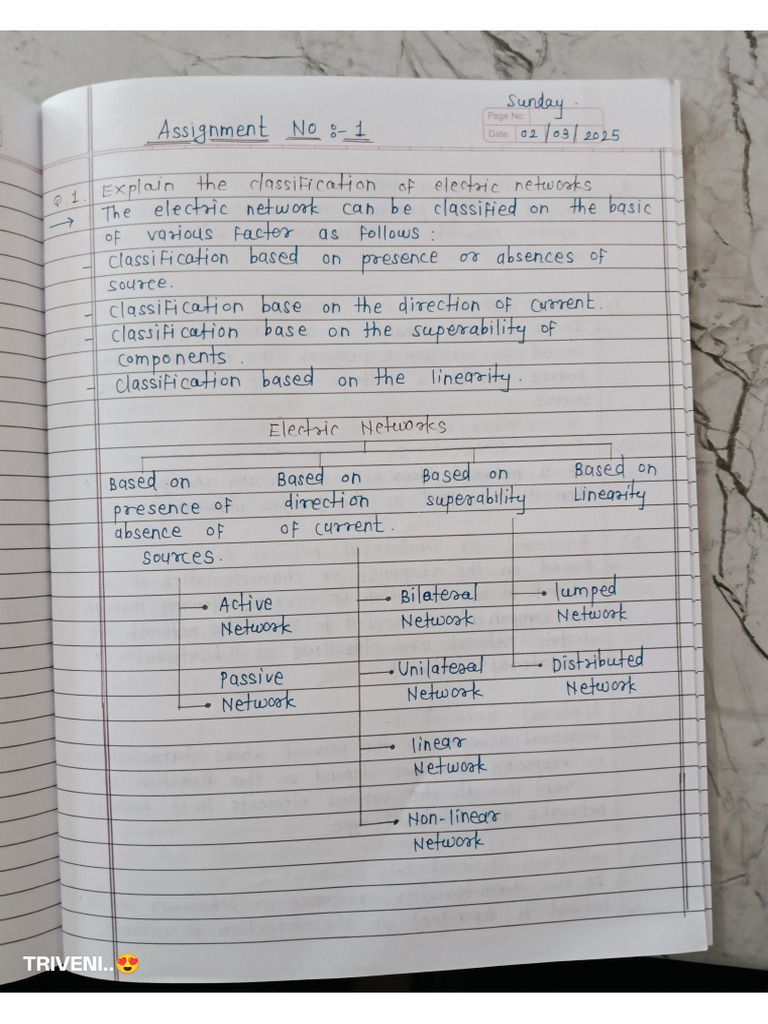 Sunday.
Page No:
Date: 02/03/2025
Assignment No :- 1
Q.1. Explain the classification of electric networks
→ The electric network can be classified on the basic
of various factor as follows :
- classification based on presence or absences of
source.
- classification base on the direction of current.
- classification base on the superability of
components.
- classification based on the linearity.
Electric Networks
Based on presence of absence of sources.
Based on direction of current.
Based on superability
Based on Linearity
Active Network
Passive Network
Bilateral Network
Unilateral Network
linear Network
Non-linear Network
lumped Network
Distributed Network
TRIVENI..😍